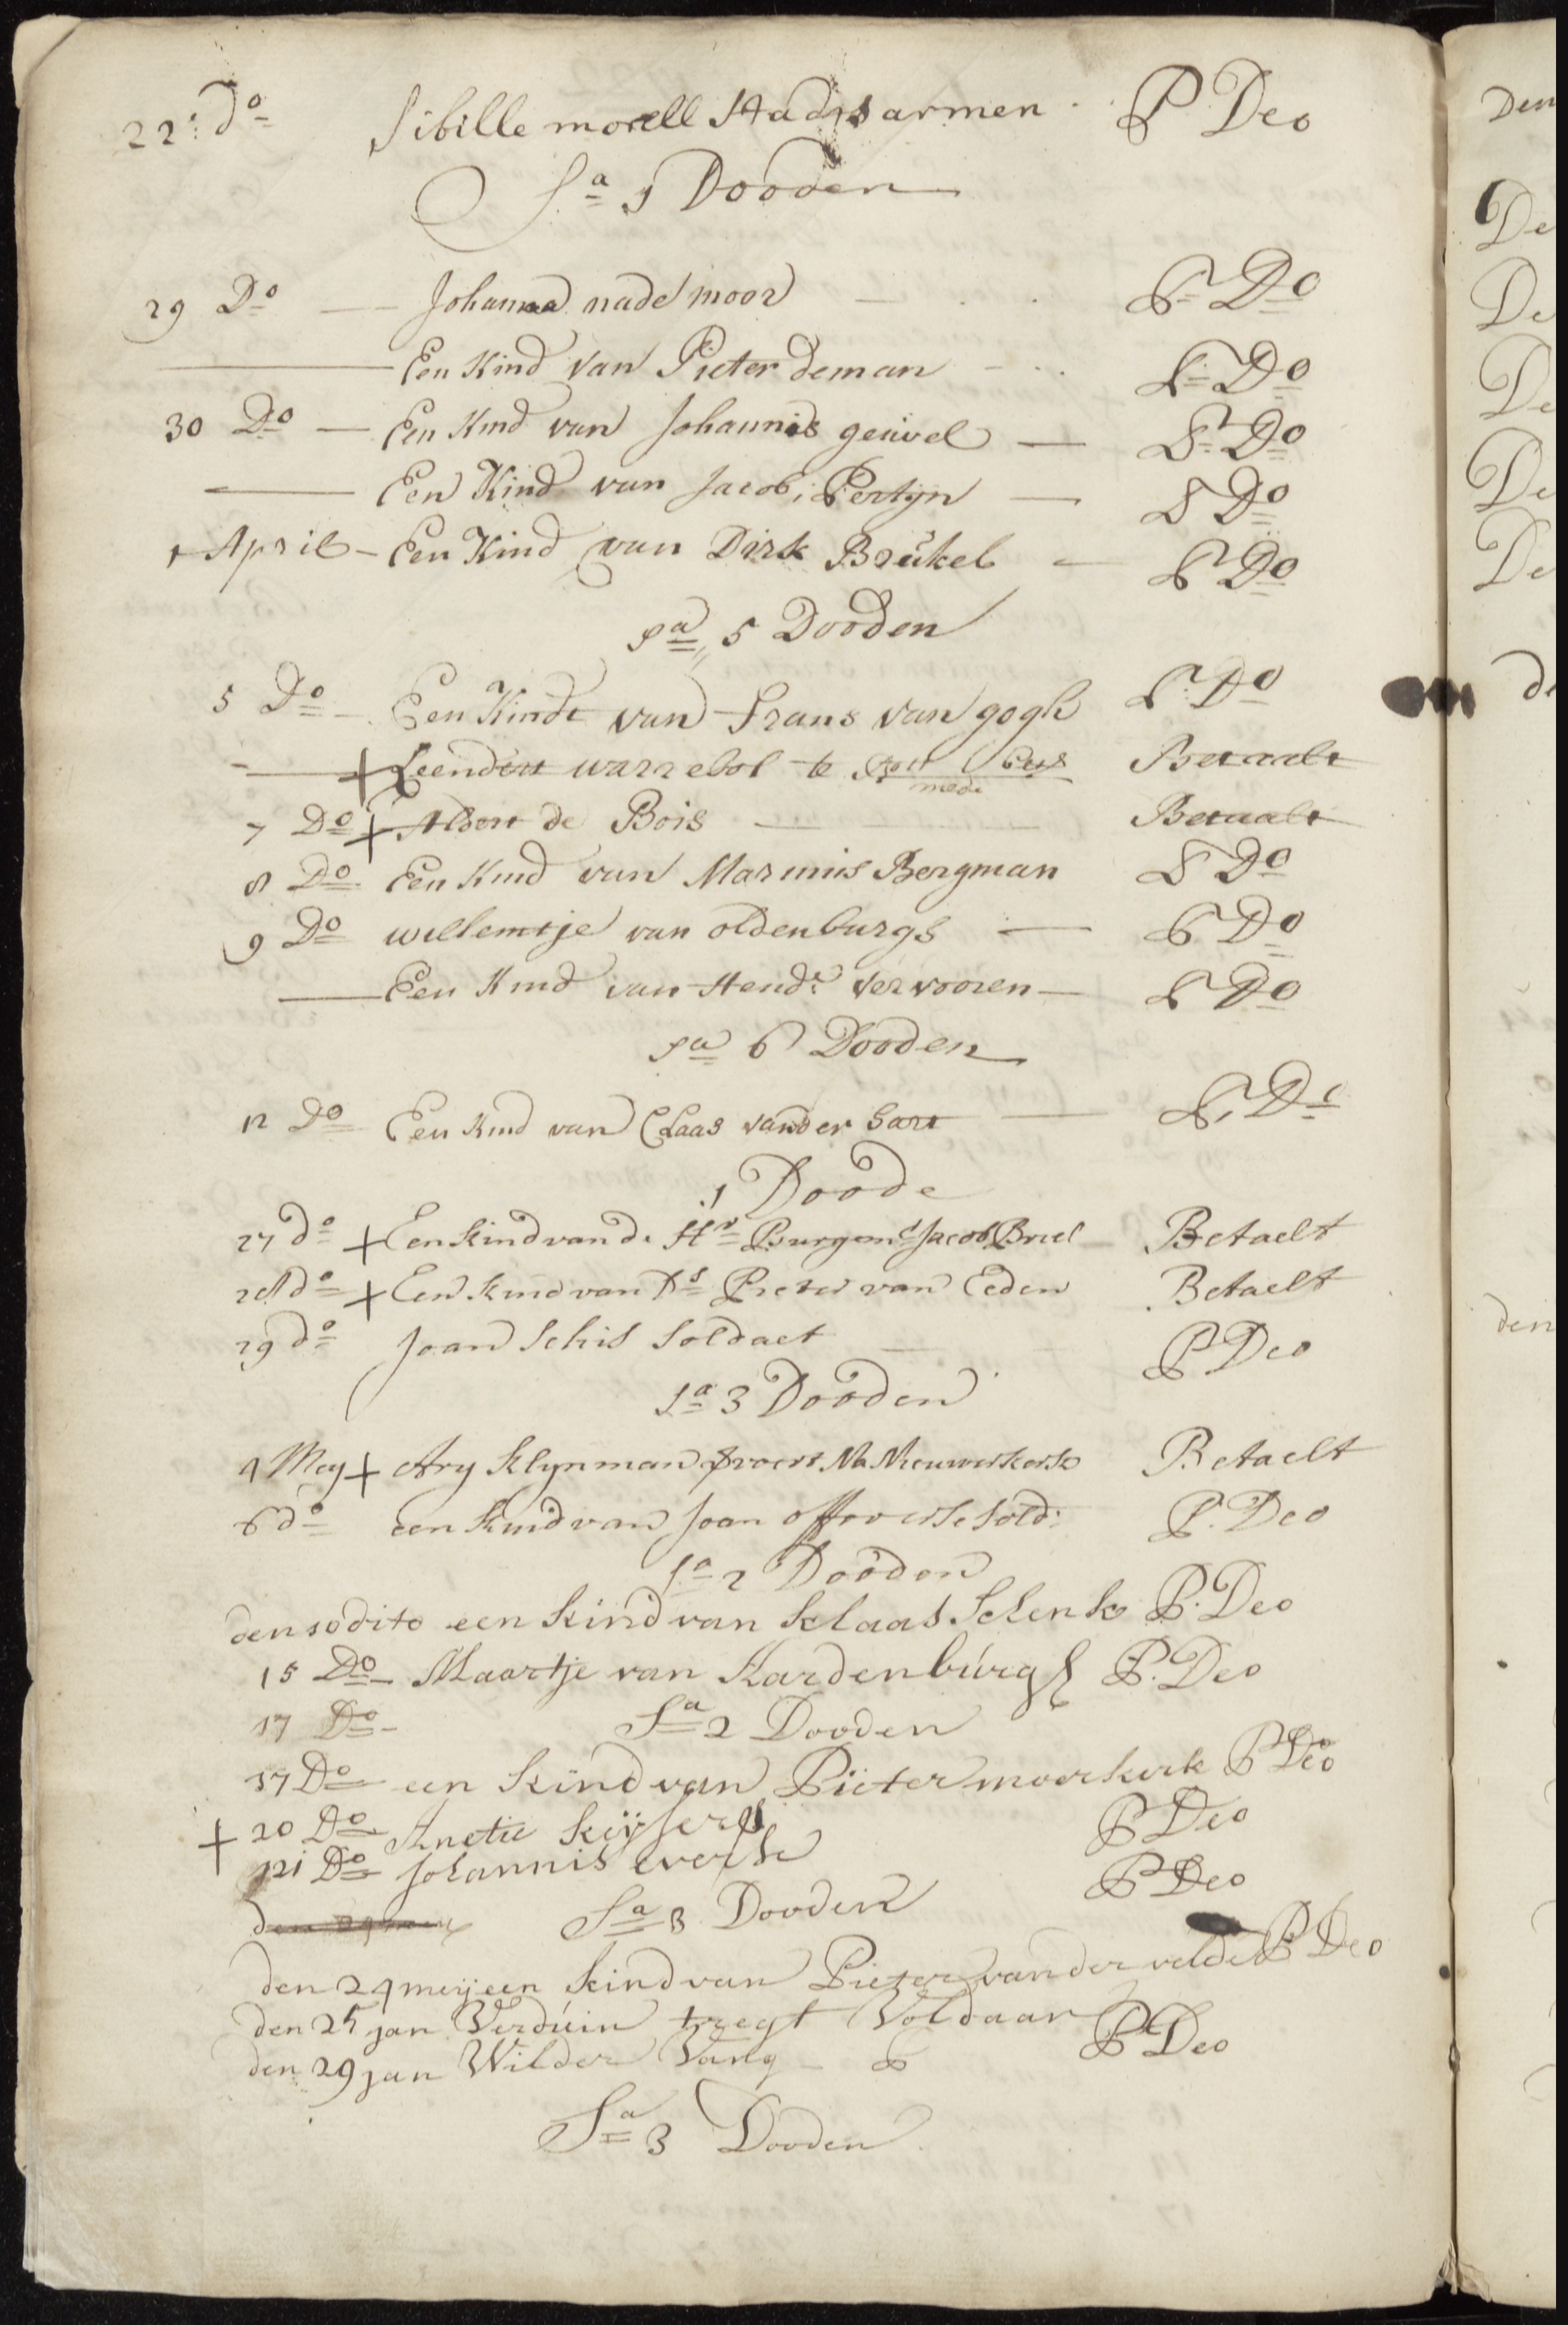 22: do Sibille morell Stads armen P Deo
Sa 1 Dooden
29 Do — Johanna nade moor P Do
Een Kind van Pieter deman P Do
30 Do — Een Kind van Johannis geuvel — P Do
Een Kind van Jacob Perlijn — P Do
1 April — Een Kind van Dirk Breukel — P Do
Sa 5 Dooden
5 Do — Een Kindt van Frans van gogh P Do
+ Leendert warrebol te Betaalt
mede
7 Do + Albert de Bois — Betaalt
8 Do Een Kind van Marinus Bergman P Do
9 Do willemtje van oldenburgs — P Do
— Een Kind van Hendr Vervooren — P Do
Sa 6 Dooden
12 Do Een Kind van Claas vander hart — P Do
1 Doode
27 do + Een kind van d. Hr Burgemr Jacob Briel Betaelt
28 do + Een kind van Ds Pieter van Eeden Betaelt
29 do Joan Schis Soldaet P Deo
Sa 3 Dooden
4 Mey + Ary Klynman Na Nieuwerkerk Betaelt
6 do een kind van Joan Sold: P. Deo
Sa 2 Dooden
den 10 dito een kind van klaas Schenk P. Deo
15 Do Maartje van Hardenburgh P. Deo
17 Do — Sa 2 Dooden
17 Do — een kind van Pieter moerkerk P Deo
+ 20 Do Anetie keijsers P Deo
21 Do Johannis everse P Deo
den Sa 3 Dooden
den 24 meij een kind van Pieter van der velde P Deo
den 25 jan Verduin tregt Voldaan
den 29 jan Wilder Vang — P Deo
Sa 3 Dooden
Den
De
De
De
De
De
de
den